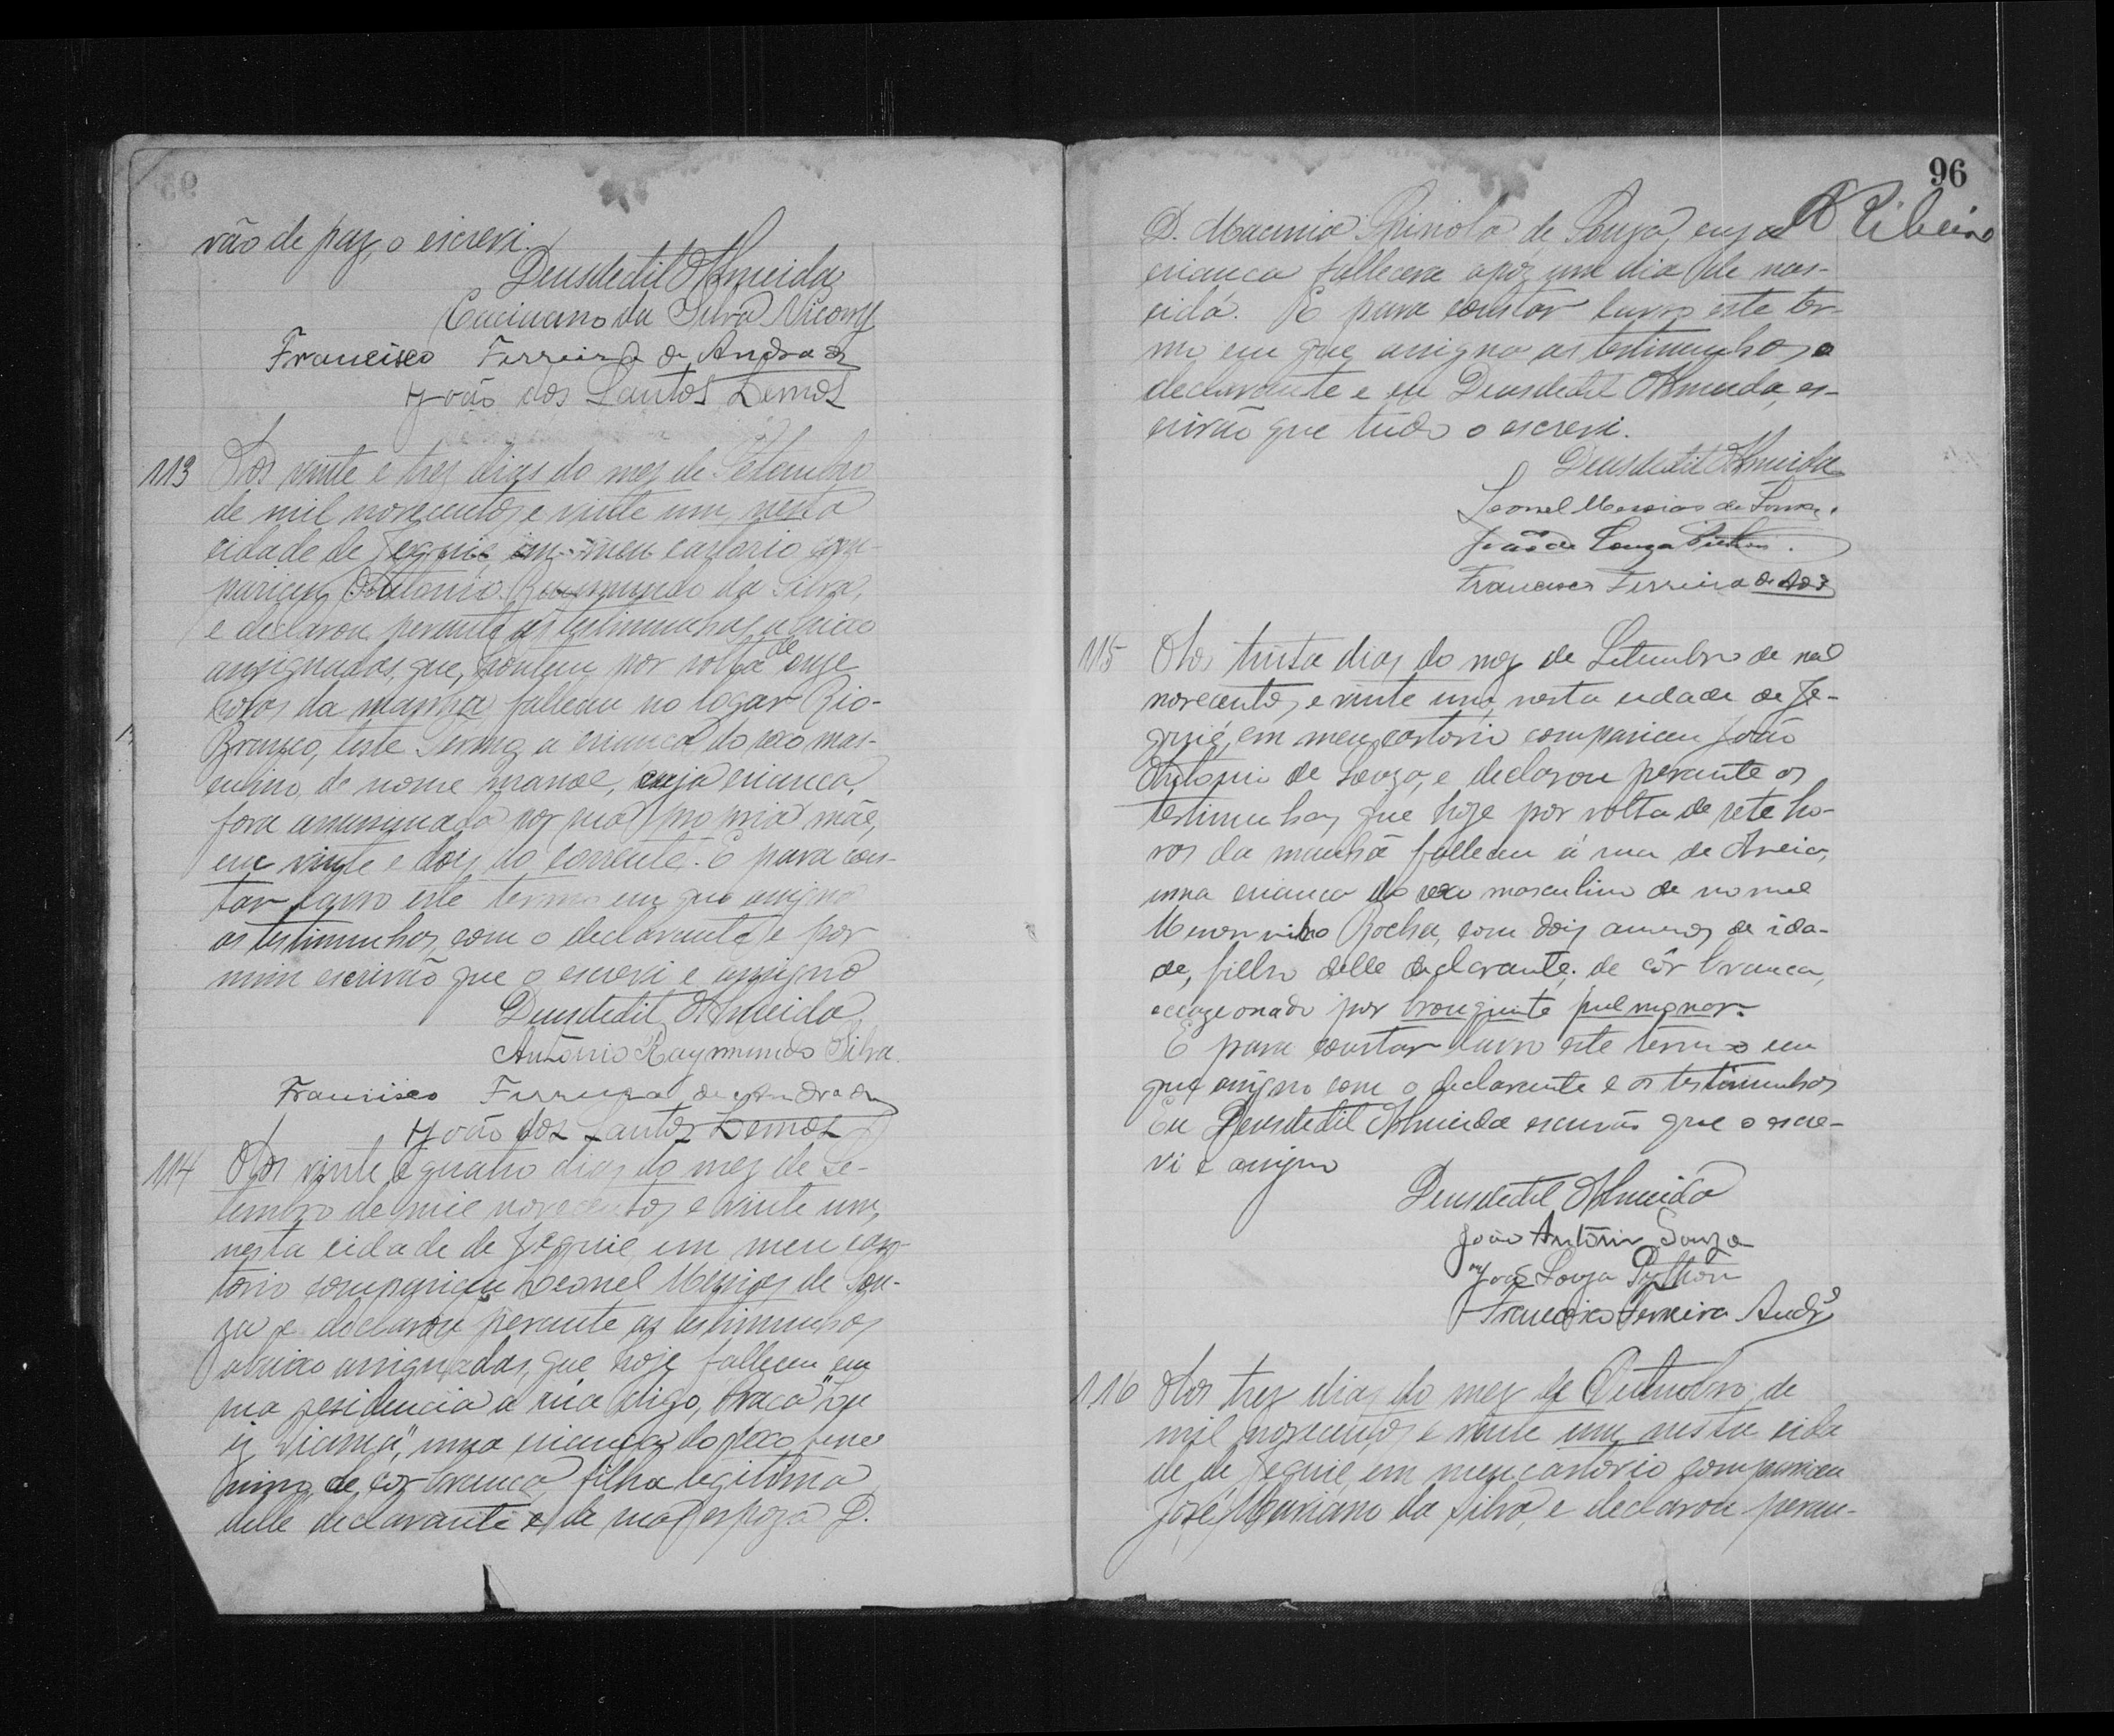 rão de paz, o escrevi.
Deusdedit Almeida
da Silva
Francisco Ferreira de Andrade
João dos Santos Lemos
113 Aos vinte e trez dias do mez de Setembro
de mil novecentos e vinte um, nesta
cidade de Jequié em meu cartorio com-
pareceu Antonio Raymundo da Silva,
e declarou perante as testimunhas abaixo
assignadas, que, hontem por volta de onze
horas da manhã falleceu no logar Rio-
Branco, deste Termo, a criança do sexo mas-
culino, de nome Manoel, cuja criança,
fora assassinada por sua propria mãe,
em vinte e dois do corrente. E para cons-
tar lavro este termo em que assigno
as testimunhas, com o declarante e por
mim escrivão que o escrevi e assigno
Deusdedit Almeida
Antonio Raymundo Silva.
Francisco Ferreira de Andrade
João dos Santos Lemos
114 Aos vinte e quatro dias do mez de Se-
tembro de mil novecentos e vinte um,
nesta cidade de Jequié em meu car-
torio compareceu Leonel Messias de Sou-
za e declarou perante as testimunhas
abaixo assignadas, que hoje falleceu em
sua residencia a rua digo, Praça "
Vianna", uma criança do sexo femi
nino, de cor branca, filha legitima
delle declarante e de sua espoza D.
96
A Ribeiro
D. Spinola de Souza, cuja
criança fallecera apoz um dia de nas-
cida. E para constar lavro este ter-
mo em que assigno as testimunhas o
declarante e eu Deusdedit Almeida, es-
crivão que tudo o escrevi.
Deusdedit Almeida
Leonel Messias de Souza.
João de Souza
Francisco Ferreira de
115 Aos trinta dias do mez de Setembro de mil
novecentos e vinte um, nesta cidade de Je-
quié, em meu cartorio compareceu João
Antonio de Souza, e declarou perante as
testimunhas que hoje por volta de sete ho-
ras da manhã falleceu á rua de Areia,
uma criança do sexo masculino de nome
Rocha, com dois annos de ida-
de, filho delle declarante, de côr branca,
occazeonado por bronquite pulmonar.
E para constar lavro este termo em
que assigno com o declarante e as testimunhas
Eu Deusdedit Almeida escrivão que o escre-
vi e assigno
Deusdedit Almeida
João Antônio Souza
João Souza Pithon
Francisco Ferreira Andrº
116 Aos trez dias do mez de Outubro de
mil novecentos e vinte um nesta cida
de de Jequié, em meu cartorio compareceu
José Mariano da Silva, e declarou peran-